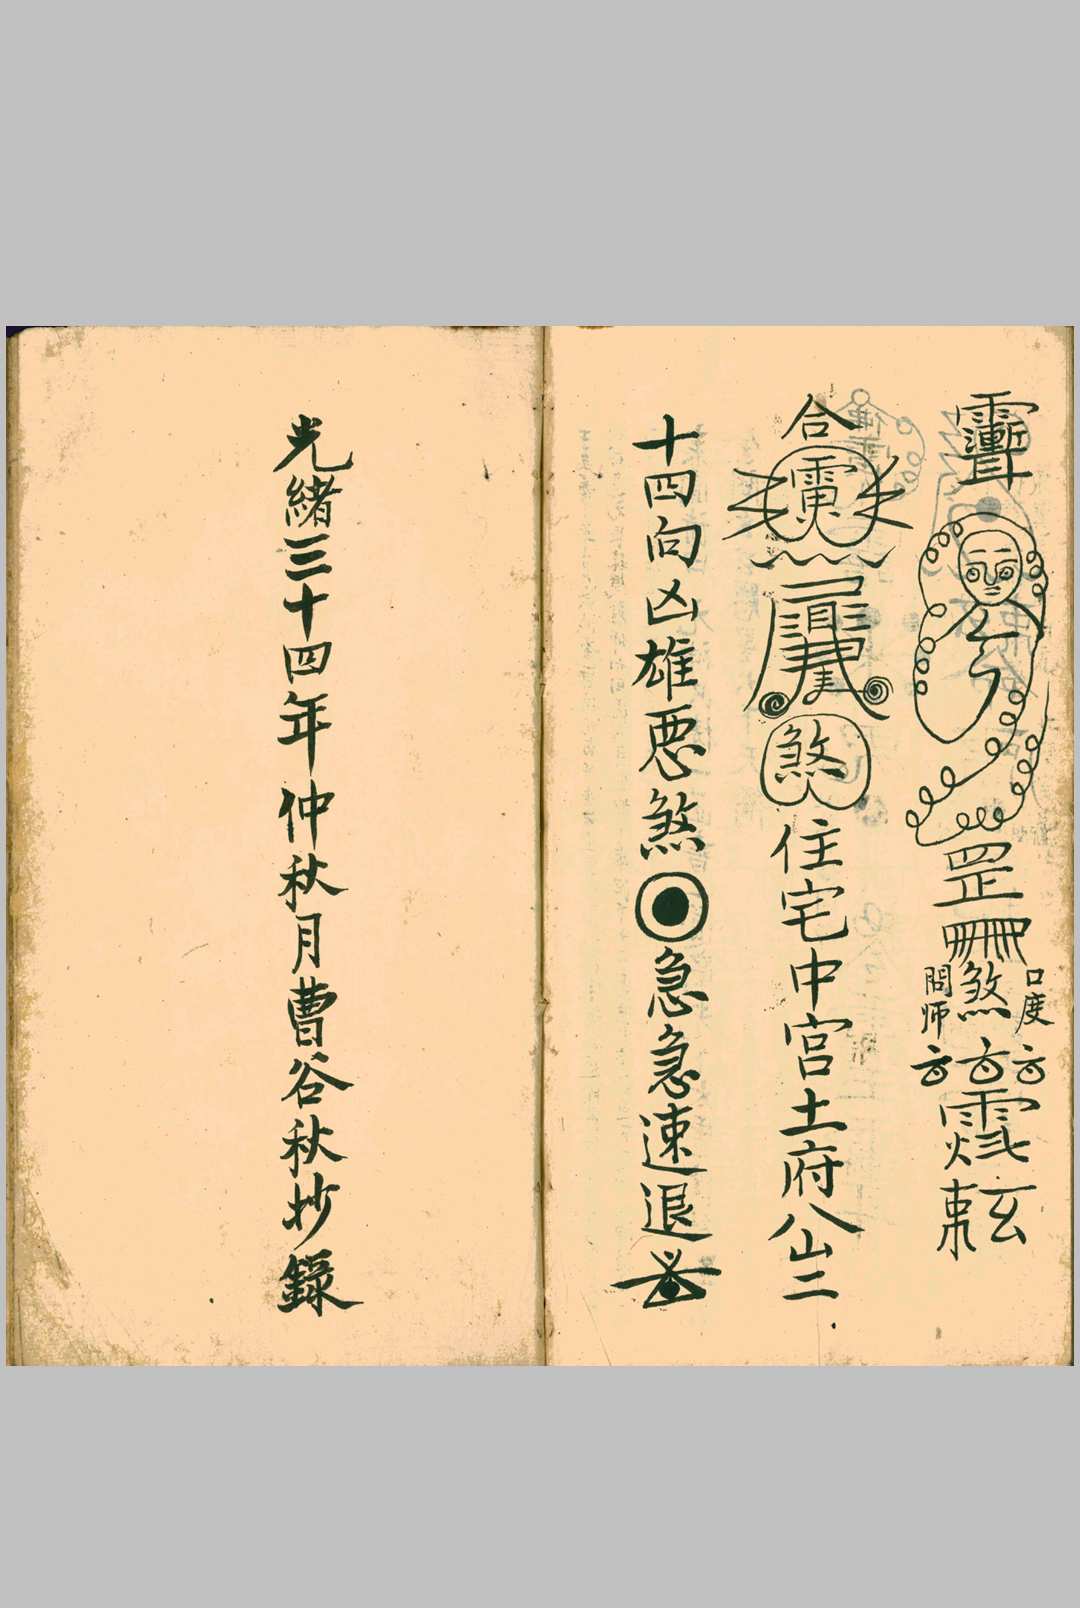 罡
煞
口度
問师
玄
合
煞
住宅中宮土府八山二
十四向凶雄恶煞
急急速退
光緒三十四年仲秋月曹谷秋抄錄